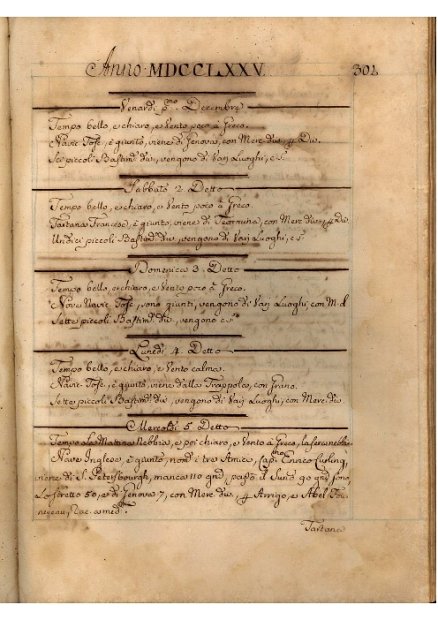 Anno MDCCLXXV. 302
Venardi p.mo Decembre
Tempo bello, e chiaro, e Vento poco à Greco.
Nave Tosc.e, è giunto, viene di Genova, con Merc. div.e, p Div.
Sei piccoli Bastim.ti div., vengono di Varj Luoghi, e s.a
Sabbato 2. Detto
Tempo bello, e chiaro, e Vento poco à Greco.
Tartana Francese, è giunto, viene di con Merc. div.e p Div.
Undici piccoli Bastim.ti div., vengono di Varj Luoghi, e s.a
Domenica 3. Detto
Tempo bello, e chiaro, e Vento poco à Greco.
Nove Navic. Tosc.e, sono giunti, vengono di Varj Luoghi, con M. d.
Sette piccoli Bastim.ti div., vengono e s.a
Lunedi 4. Detto
Tempo bello, e chiaro, e Vento calma.
Navic. Tosc.e, è giunto, viene dalla Trappola, con Grano.
Sette piccoli Bastim.ti div., vengono di Varj Luoghi, con Merc. div.e
Mercoldi 5 Detto
Tempo La Matina Nebbia, e poi chiaro, e Vento à Greco, la sera nebbia
Nave Inglese, è giunto, nom. i tre Amici, Cap.no Enrico
viene di S. Petersbourgh, manca 110 gni, passò il Sunto 90 gni sono,
Lo stretto 50, e di Genova 7, con Merc. div.e, p Arrigo, e Abel
Rac. a med.i
Tartana